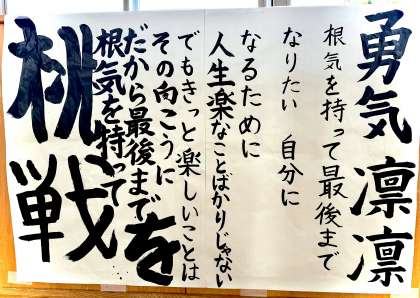 勇気凛凛
根気を持って最後まで
なりたい 自分に
なるために
人生楽なことばかりじゃない
でもきっと楽しいことは
その向こうに
だから最後までを
根気を持って
桃戦